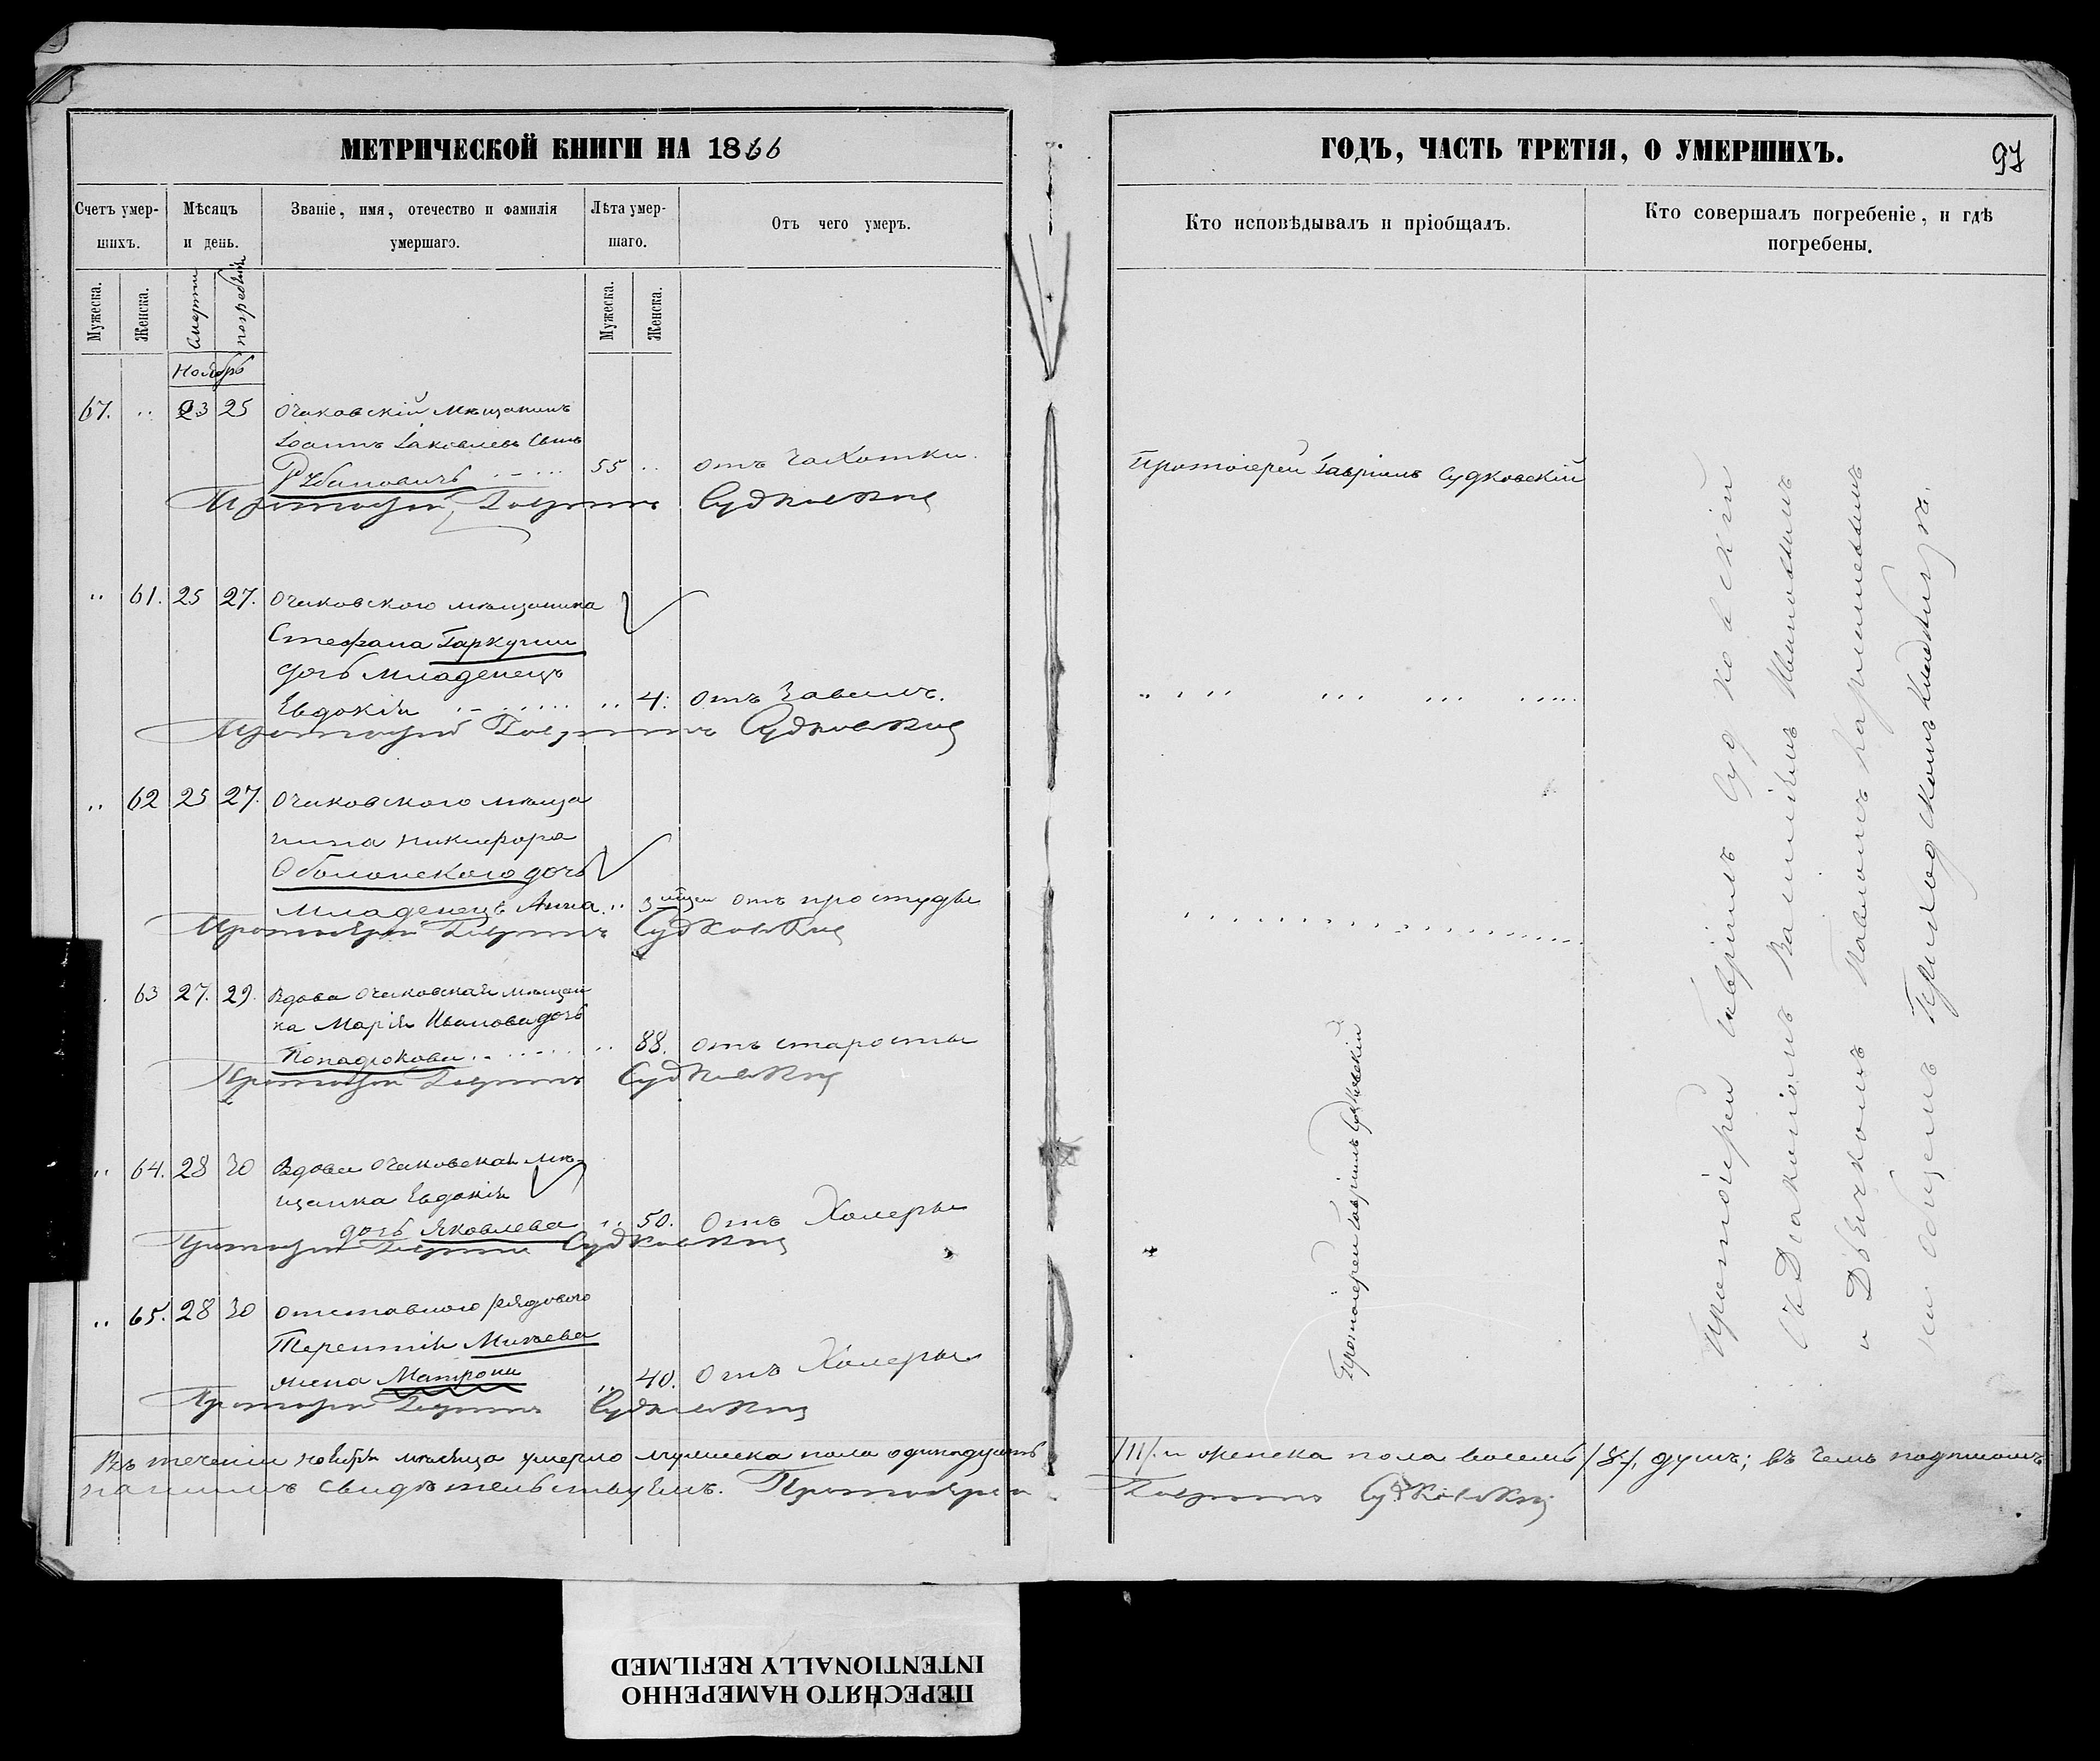 МЕТРИЧЕСКОЙ КНИГИ НА 1866
Счетъ умер-
шихъ.
Мѣсяцъ
и день.
Званіе, имя, отечество и фамилія
умершаго.
Лѣта умер-
шаго.
Отъ чего умеръ.
Мужеска.
Женска.
Смерти
погребенія
Мужеска.
Женска.
Ноябрь
67. 23 25 Очаковскій мѣщанинъ
Іоаннъ Іаковлевъ сынъ
Рѣбановичъ 55 отъ чахотки.
Протоіерей Гавріилъ Судковскій
61. 25 27. Очаковского мѣщанина
Стефана Гаркуши
дочь младенецъ
Евдокія 4. отъ завалъ.
Протоіерей Гавріилъ Судковскій
62 25 27. Очаковского мѣща
нина Никифора
Оболонского дочь
младенецъ Анна 3 отъ простуды
Протоіерей Гавріилъ Судковскій
63 27. 29. Вдова Очаковская мѣщан
ка Марія Иванова дочь
Попадюкова 88. отъ старости
Протоіерей Гавріилъ Судковскій
64. 28 30 Вдова Очаковская мѣ-
щанка Евдокія
дочь Яковлева 50. отъ Холеры
Протоіерей Гавріилъ Судковскій
65. 28 30 Отставного рядового
Терентія Михѣева
жена Матрона 40. отъ Холеры
Протоіерей Гавріилъ Судковскій
Въ теченіи ноября мѣсяца умерло мужеска пола одинадцать
нашимъ свидѣтельствуемъ. Протоіерей
ГОДЪ, ЧАСТЬ ТРЕТІЯ, О УМЕРШИХЪ.
97
Кто исповѣдывалъ и пріобщалъ.
Кто совершалъ погребеніе, и гдѣ
погребены.
Протоіерей Гавріилъ Судковскій
Протоіерей Гавріилъ Судковскій
Протоіерей Гавріилъ Судковскій
съ Діакономъ Ивановымъ
и Дьячкомъ Павломъ
на общемъ Приходскомъ Кладбищѣ.
/11/. и женска пола восемь /8/, душъ; въ чемъ подписомъ
Гавріилъ Судковскій
ПЕРЕСНЯТО НАМЕРЕННО
INTENTIONALLY REFILMED